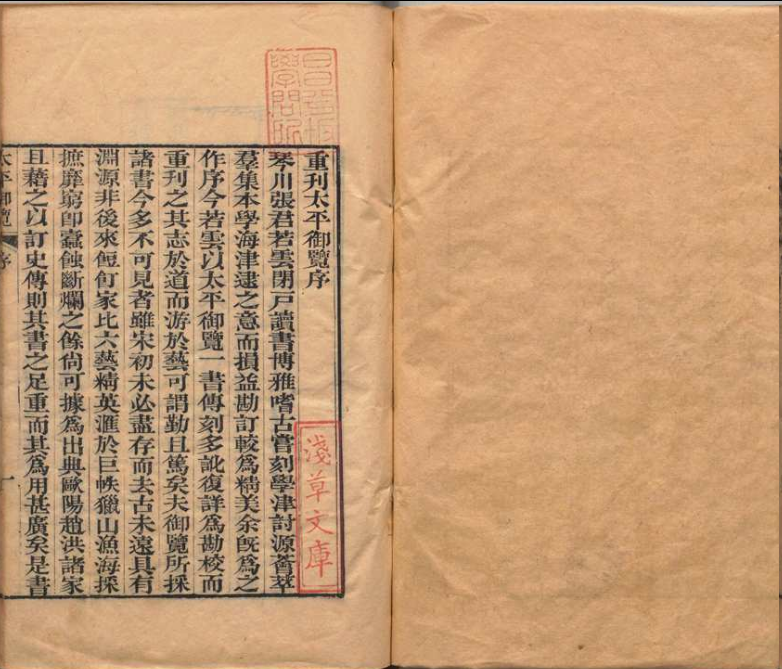 重刊太平御覽序
琴川張君若雲閉戸讀書博雅嗜古嘗刻學津討源薈萃
羣集本學海津逮之意而損益勘訂較爲精美余旣爲之
作序今若雲以太平御覽一書傳刻多訛復詳爲勘校而
重刊之其志於道而游於藝可謂勤且篤矣夫御覽所採
諸書今多不可見者雖宋初未必盡存而去古未遠具有
淵源非後來餖飣家比六藝精英滙於巨帙獵山漁海採
摭靡窮卽蠧蝕斷爛之餘尙可據爲出典歐陽趙洪諸家
且藉之以訂史傳則其書之足重而其爲用甚廣矣是書
太平御覽 序 一
淺草文庫
學問所